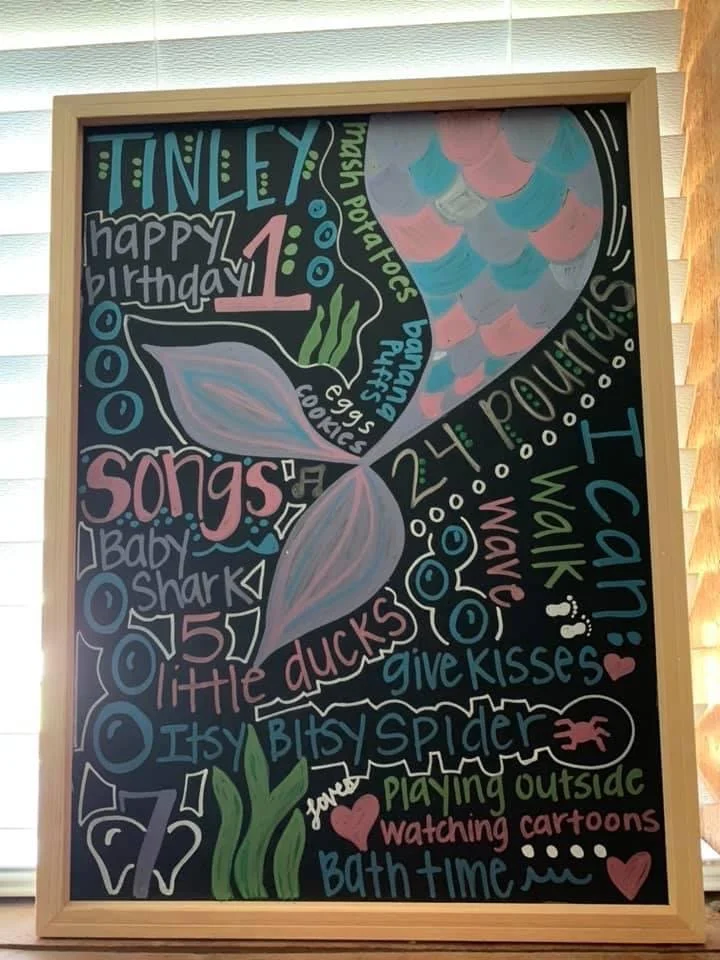 TINLEY
happy
birthday
1
mash potatoes
banana
Puffs
eggs
cookies
24 pounds
I can:
walk
wave
give kisses
songs
Baby
Shark
5
little ducks
Itsy Bitsy Spider
7
loves
playing outside
watching cartoons
Bath time